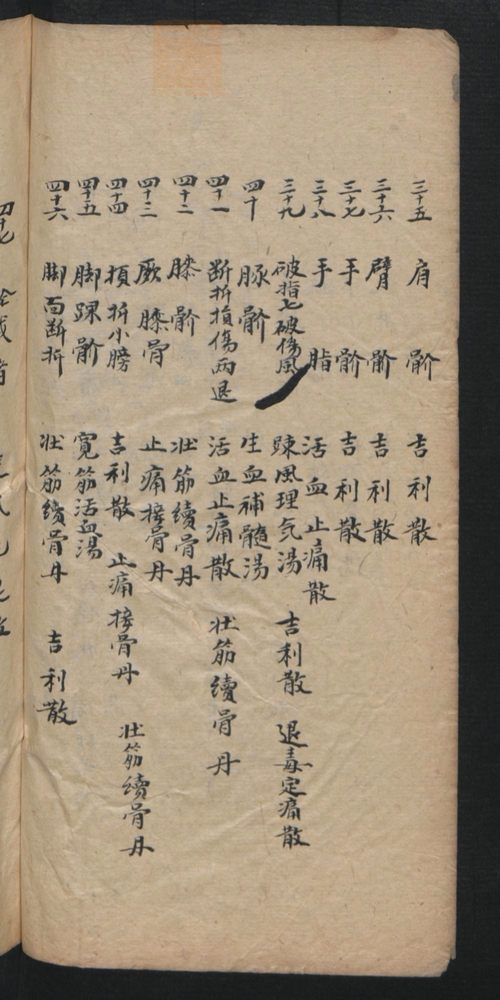 三十五 肩骱 吉利散
三十六 臂骱 吉利散
三十七 手骱 吉利散
三十八 手脂 活血止痛散
三十九 破指七破傷風 踈風理気湯 吉利散 退毒定痛散
四十 豚骱 生血補髓湯
四十一 断折損傷両退 活血止痛散 壮筋續骨丹
四十二 膝骱 壮筋續骨丹
四十三 厥膝骨 止痛接骨丹
四十四 損折小膀 吉利散 止痛接骨丹 壮筋續骨丹
四十五 脚踝骱 寛筋活血湯
四十六 脚面断折 壮筋續骨丹 吉利散
四十七